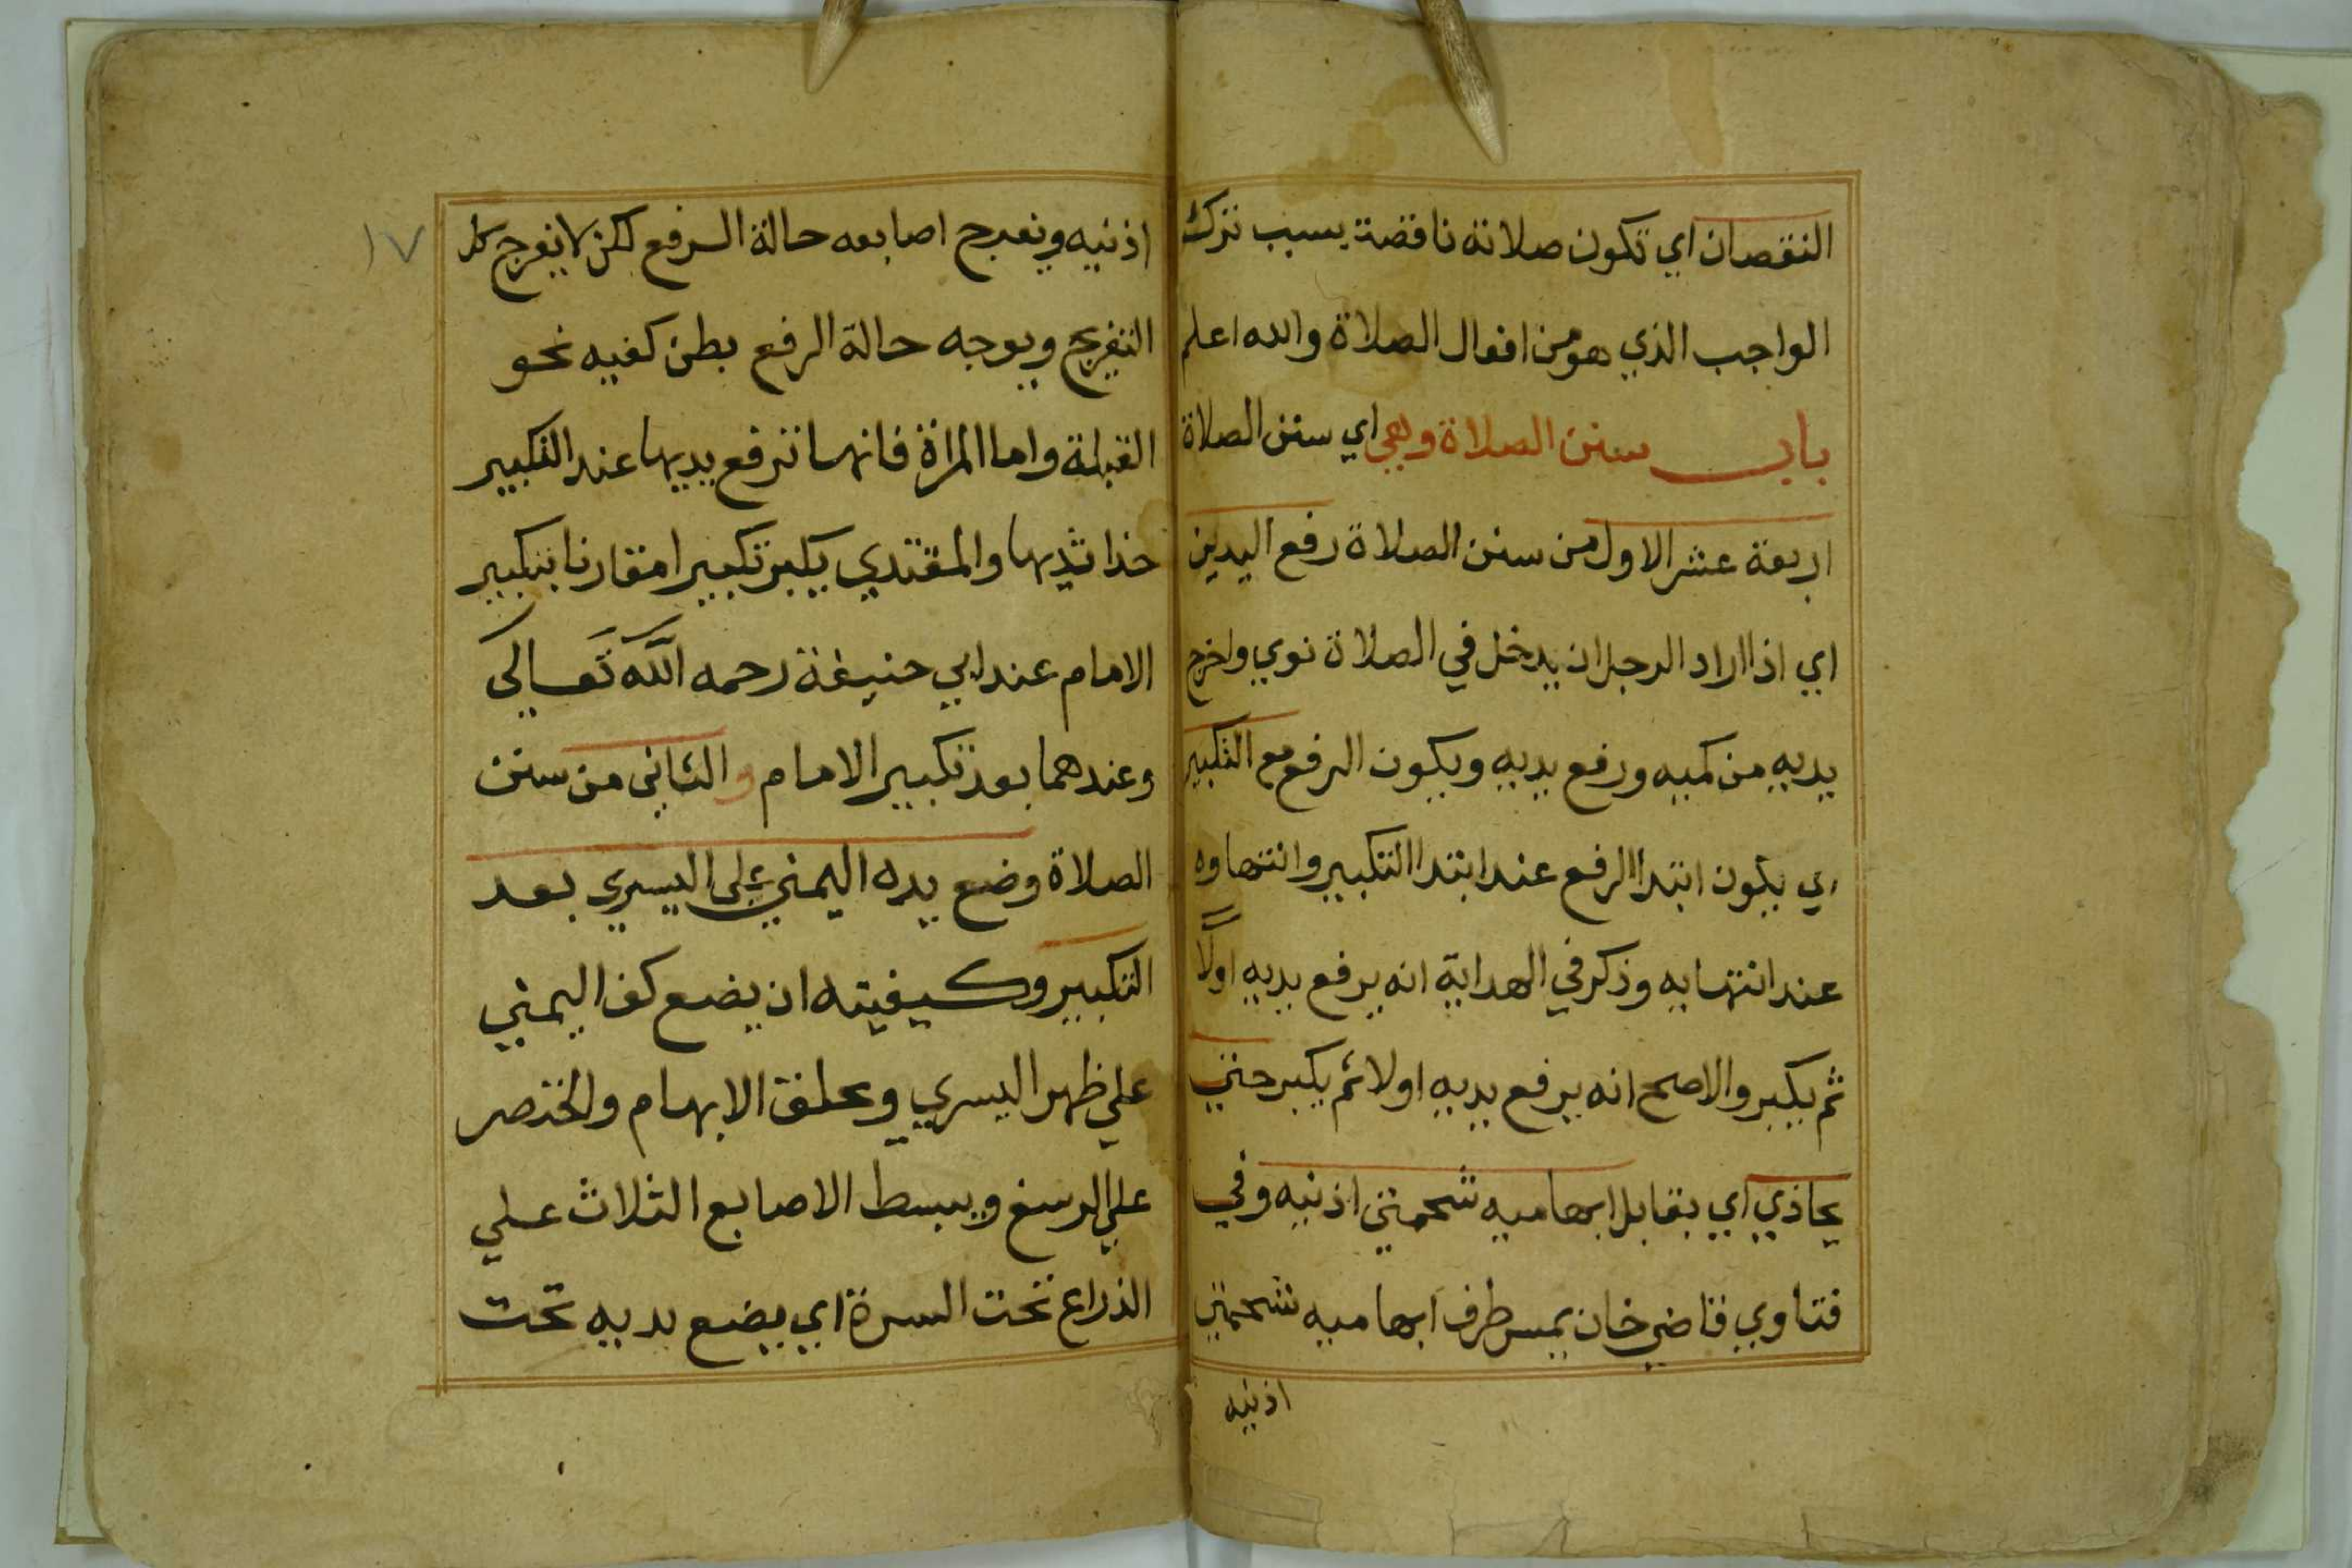 النقصان اي تكون صلاته ناقصة بسبب ترك
الواجب الذي هو من افعال الصلاة والله اعلم
باب سنن الصلاة وهي اي سنن الصلاة
اربعة عشر الاول من سنن الصلاة رفع اليدين
اي اذا اراد الرجل ان يدخل في الصلاة نوي واخرج
يديه من كميه ورفع يديه ويكون الرفع مع التكبير
اي يكون ابتدا الرفع عند ابتدا التكبير وانتهاوه
عند انتهايه وذكر في الهداية انه يرفع يديه اولًا
ثم يكبر والاصح انه يرفع يديه اولا ثم يكبر حتي
يحاذي اي يقابل ابهاميه شحمتي اذنيه وفي
فتاوي قاضي خان يمس طرف ابهاميه شحمتي
اذنيه
١٧
اذنيه ويفرج اصابعه حالة الرفع لكن لا يفرج كل
التفريج ويوجه حالة الرفع بطن كفيه نحو
القبلة واما المراة فانها ترفع يديها عند التكبير
حذا ثديها والمقتدي يكبر تكبيرا مقارنا بتكبير
الامام عند ابي حنيفة رحمه الله تعالي
وعندهما بعد تكبير الامام والثاني من سنن
الصلاة وضع يده اليمني علي اليسري بعد
التكبير وكيفيته ان يضع كف اليمني
علي ظهر اليسري ويحلق الابهام والخنصر
علي الرسغ ويبسط الاصابع الثلاث علي
الذراع تحت السرة اي يضع يديه تحت